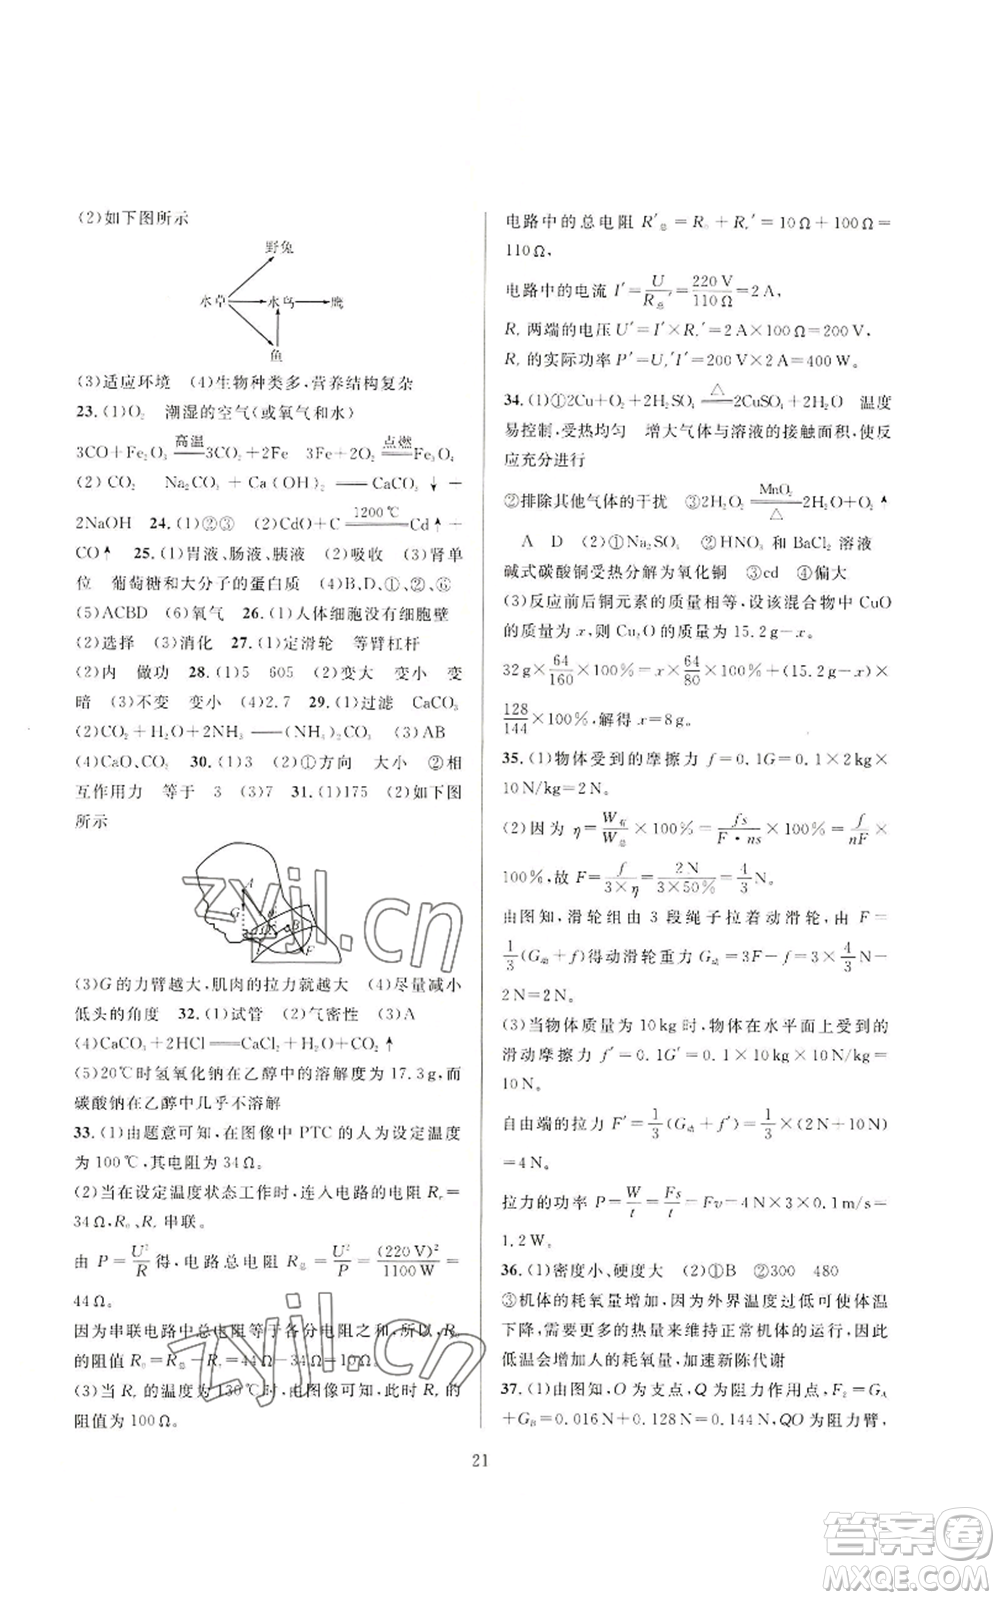 (2)如下图所示
野兔
水草 水鸟 鹰
鱼
(3)适应环境 (4)生物种类多,营养结构复杂
23.(1)O₂ 潮湿的空气(或氧气和水)
3CO+Fe₂O₃ 高温 2Fe 3Fe+2O₂ 点燃 Fe₃O₄
(2)CO₂ Na₂CO₃+Ca(OH)₂══CaCO₃↓+
2NaOH 24.(1)②③ (2)CdO+C 1200℃ Cd↑+
CO↑ 25.(1)胃液、肠液、胰液 (2)吸收 (3)肾单
位 葡萄糖和大分子的蛋白质 (4)B、D、①、②、⑥
(5)ACBD (6)氧气 26.(1)人体细胞没有细胞壁
(2)选择 (3)消化 27.(1)定滑轮 等臂杠杆
(2)内 做功 28.(1)5 605 (2)变大 变小 变
暗 (3)不变 变小 (4)2.7 29.(1)过滤 CaCO₃
(2)CO₂+H₂O+2NH₃══(NH₄)₂CO₃ (3)AB
(4)CaO、CO₂ 30.(1)3 (2)①方向 大小 ②相
互作用力 等于 3 (3)7 31.(1)175 (2)如下图
所示
A
G
B
F
(3)G的力臂越大,肌肉的拉力就越大 (4)尽量减小
低头的角度 32.(1)试管 (2)气密性 (3)A
(4)CaCO₃+2HCl══CaCl₂+H₂O+CO₂↑
(5)20℃时氢氧化钠在乙醇中的溶解度为17.3g,而
碳酸钠在乙醇中几乎不溶解
33.(1)由题意可知,在图像中PTC的人为设定温度
为100℃,其电阻为34Ω。
(2)当在设定温度状态工作时,连入电路的电阻Rₓ=
34Ω,R₀、Rₓ串联。
由P=U²/R得,电路总电阻R总=U²/P=(220V)²/1100W=
44Ω。
因为串联电路中总电阻等于各分电阻之和,所以,R₀
的阻值R₀=R总-Rₓ=44Ω-34Ω=10Ω。
(3)当Rₓ的温度为130℃时,由图像可知,此时Rₓ的
阻值为100Ω。
电路中的总电阻R′总=R₀+Rₓ′=10Ω+100Ω=
110Ω,
电路中的电流I′=U/R总′=220V/110Ω=2A,
Rₓ两端的电压U′=I′×Rₓ′=2A×100Ω=200V,
Rₓ的实际功率P′=Uₓ′I′=200V×2A=400W。
34.(1)①2Cu+O₂+2H₂SO₄ △ 2CuSO₄+2H₂O 温度
易控制,受热均匀 增大气体与溶液的接触面积,使反
应充分进行
②排除其他气体的干扰 ③2H₂O₂ MnO₂ △ 2H₂O+O₂↑
A D (2)①Na₂SO₄ ②HNO₃和BaCl₂溶液
碱式碳酸铜受热分解为氧化铜 ③cd ④偏大
(3)反应前后铜元素的质量相等,设该混合物中CuO
的质量为x,则Cu₂O的质量为15.2g-x。
32g×64/160×100%=x×64/80×100%+(15.2g-x)×
128/144×100%,解得x=8g。
35.(1)物体受到的摩擦力f=0.1G=0.1×2kg×
10N/kg=2N。
(2)因为η=W有/W总×100%=fs/F·ns×100%=f/nF×
100%,故F=f/3×η=2N/3×50%=4/3N。
由图知,滑轮组由3段绳子拉着动滑轮,故F=
1/3(G动+f)得动滑轮重力G动=3F-f=3×4/3N-
2N=2N。
(3)当物体质量为10kg时,物体在水平面上受到的
滑动摩擦力f′=0.1G′=0.1×10kg×10N/kg=
10N。
自由端的拉力F′=1/3(G动+f′)=1/3×(2N+10N)
=4N。
拉力的功率P=W/t=Fs/t=Fv=4N×3×0.1m/s=
1.2W。
36.(1)密度小、硬度大 (2)①B ②300 480
③机体的耗氧量增加,因为外界温度过低可使体温
下降,需要更多的热量来维持正常机体的运行,因此
低温会增加人的耗氧量,加速新陈代谢
37.(1)由图知,O为支点,Q为阻力作用点,F₂=G_A
+G_B=0.016N+0.128N=0.144N,QO为阻力臂,
21
zyjl.cn
zyjl.cn
答案卷
MXQE.COM